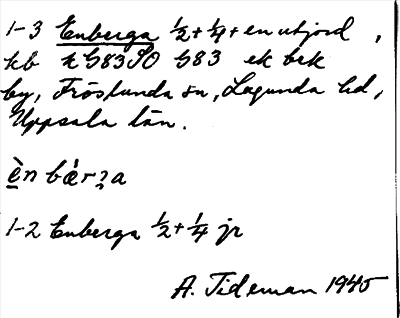 1-3 Enberga ½+¼+en utjord,
kb x G83 SO G83 ek bek
by, Fröslunda sn, Lagunda hd,
Uppsala län.
èn bǽrʒa
1-2 Enberga ½+¼ jr
A. Tideman 1945